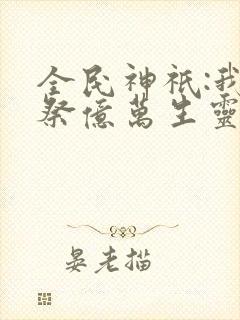 全民神祇:我
祭億萬生靈
晏老描